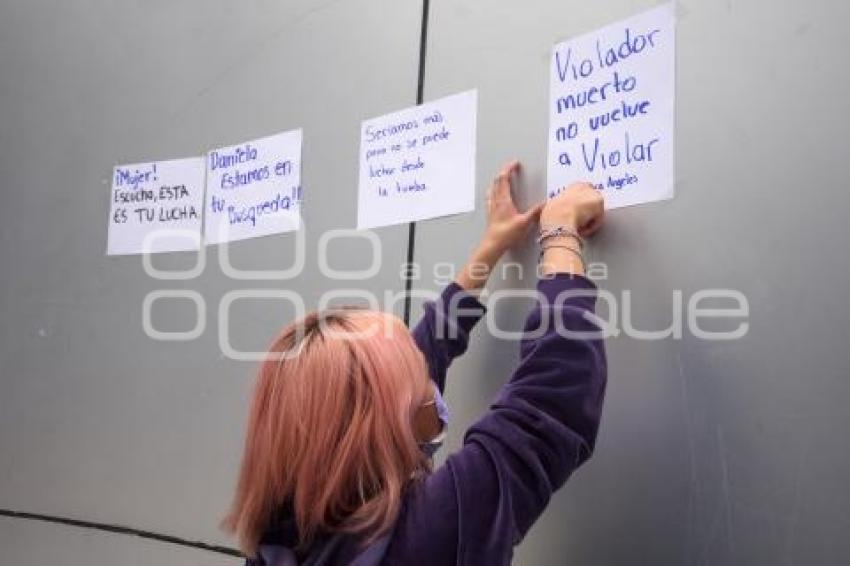 ¡Mujer!
Escucha, ESTA
ES TU LUCHA
Daniela
Estamos en
tu Búsqueda!!
Seríamos más
pero no se puede
luchar desde
la tumba.
Violador
muerto
no vuelve
a Violar
Angeles
agencia
enfoque